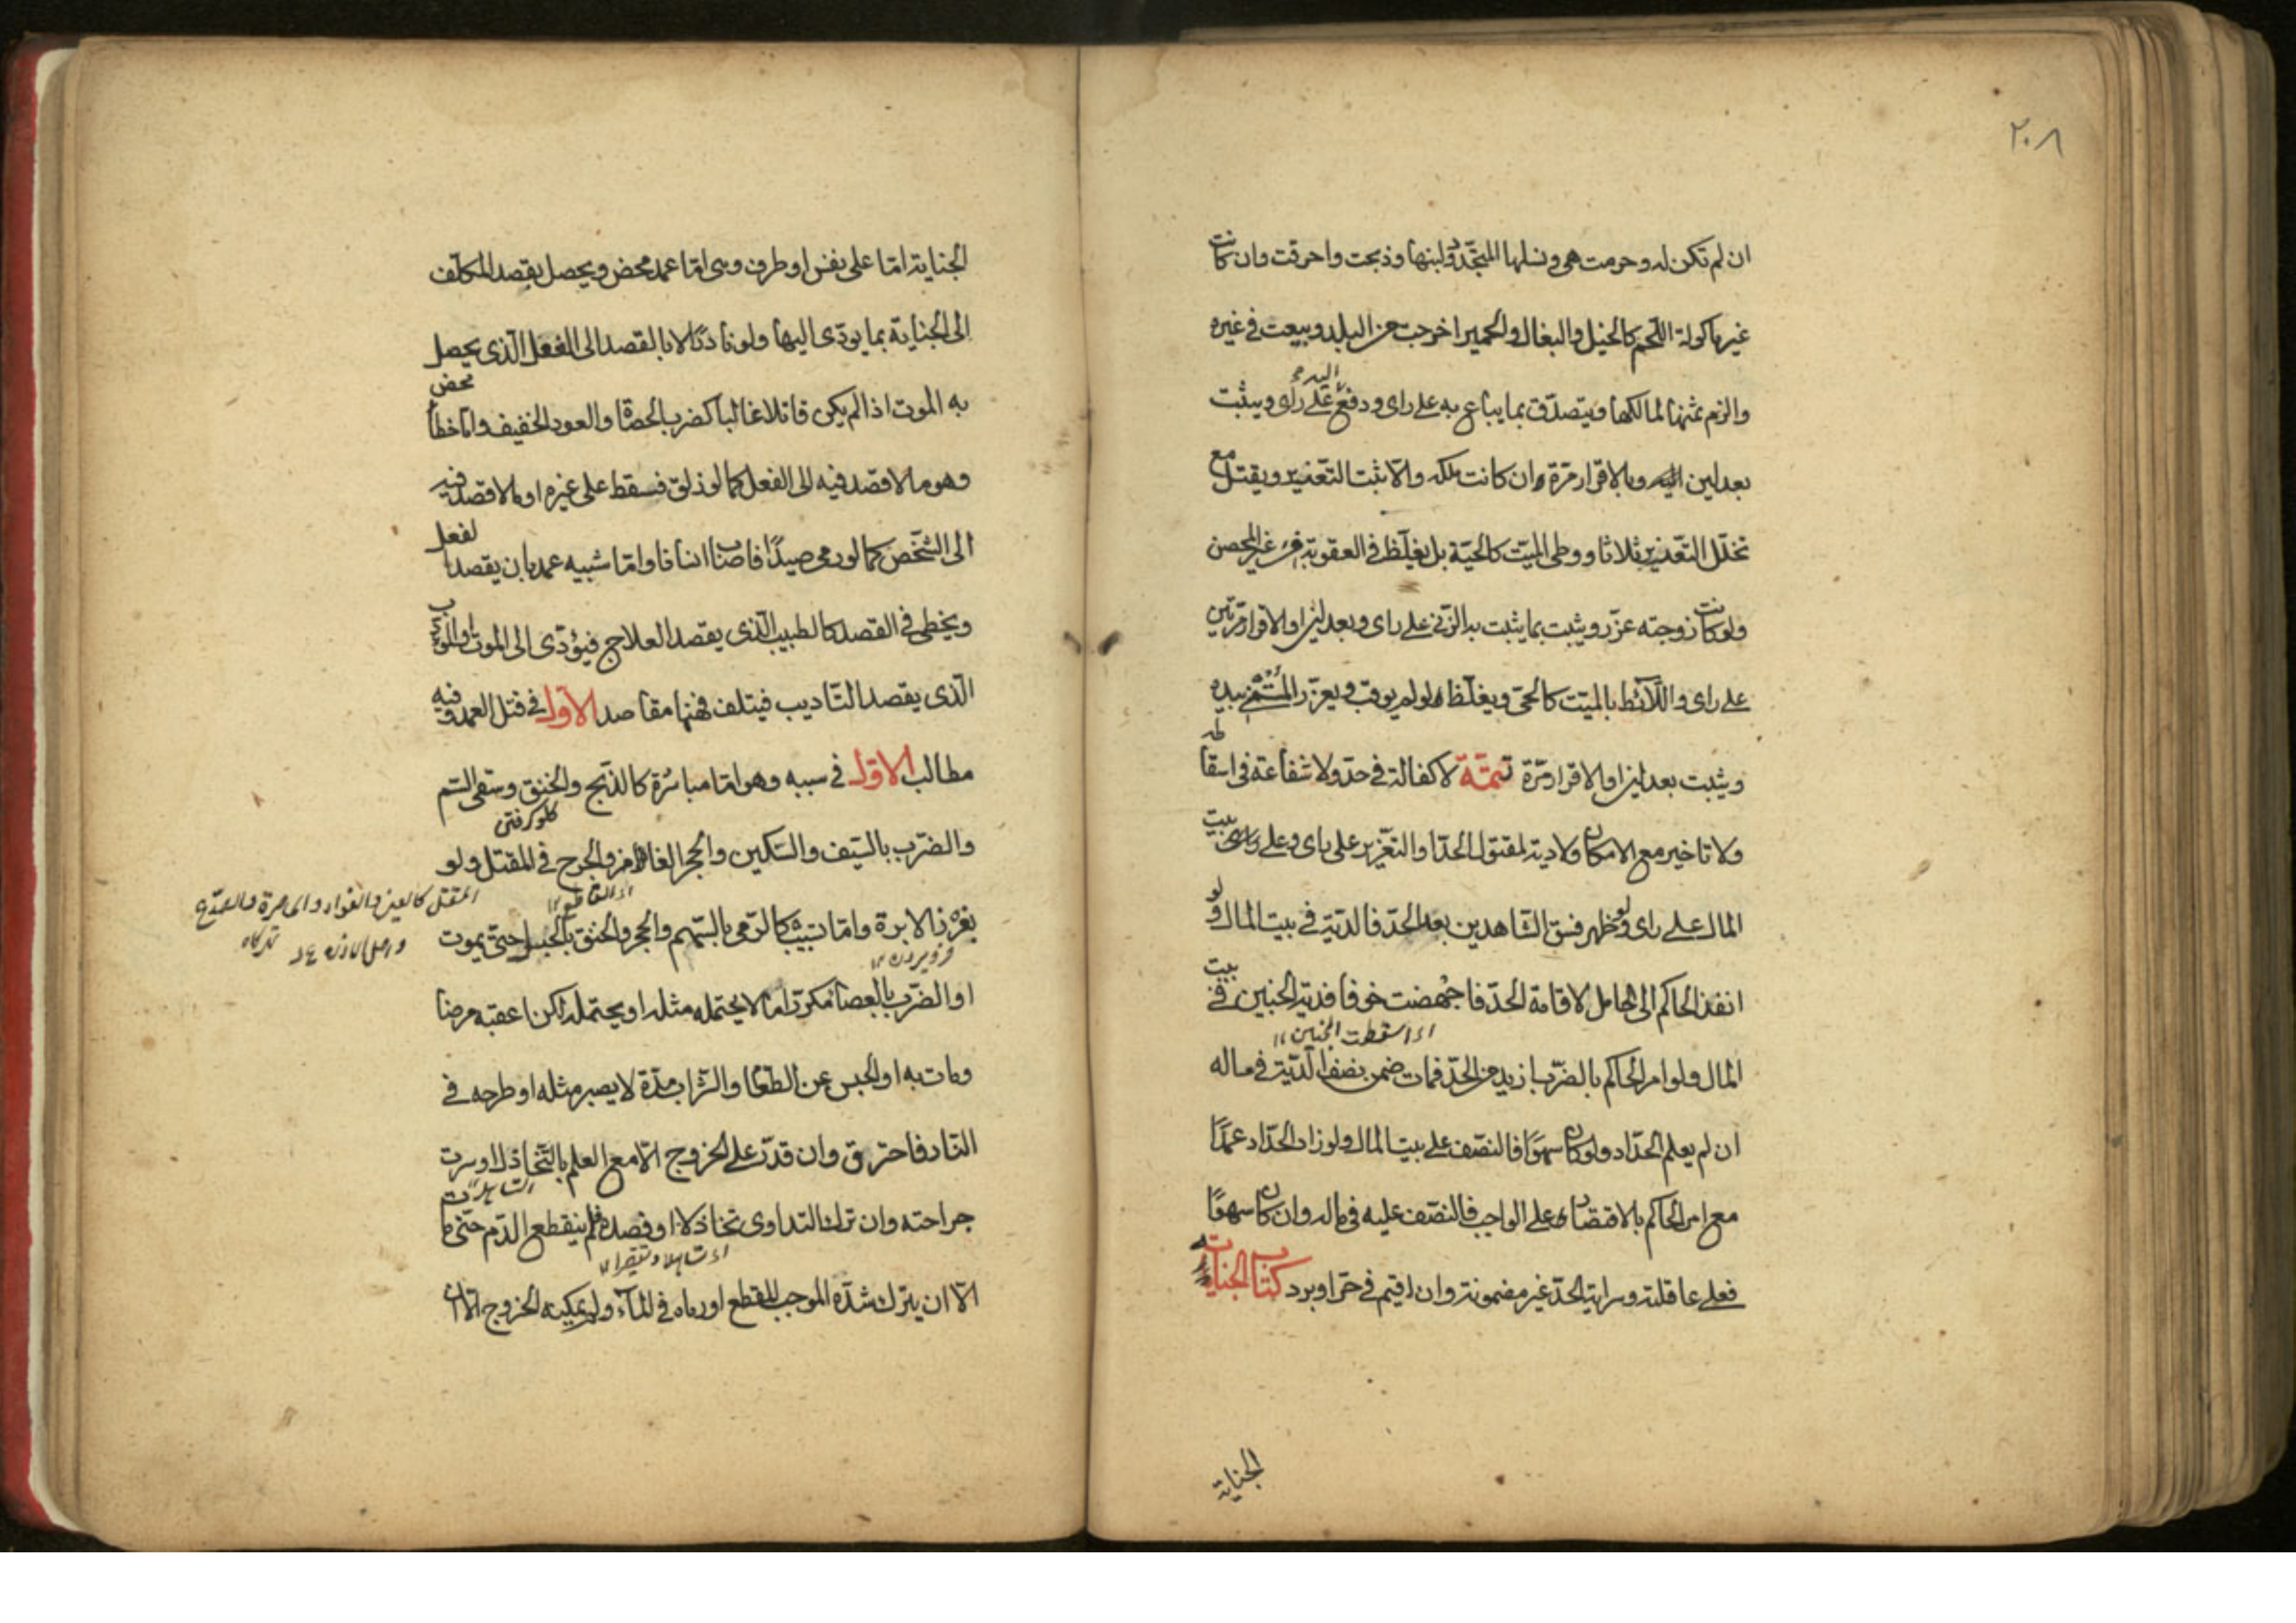 ٢٠٨
ان لم تكن له وحرمت هى ونسلها المتجدد ولبنها وذبحت واحرقت وان كانت
غير ماكولة اللحم كالخيل والبغال والحمير اخرجت من البلد وبيعت فى غيره
والزم ثمنها لمالكها ويتصدق بما يباع به على راى ودفع اليه على راى ويثبت
بعدلين وبالاقرار مرة ان كانت ملكه والا ثبت التعزير ويقتل مع
تخلل التعزير ثلاثا ووطى الميتة كالحية بل يغلظ فى العقوبة فى غير المحصن
ولو كانت زوجته عزر ويثبت بما يثبت به الزنى على راى وبعدلين او الاقرار مرتين
على راى واللائط بالميت كالحى ويغلظ لو لم يوقب ويعزر المستمنى بيده
ويثبت بعدلين او الاقرار مرة تتمة لا كفالة فى حد ولا شفاعة فى اسقاطه
ولا تاخير مع الامكان ولا دية لمقتول الحد او التعزير على راى وعلى بيت
المال على راى ولو ظهر فسق الشاهدين بعد الحد فالدية فى بيت المال ولو
انفذ الحاكم الى الحامل لاقامة الحد فاجهضت خوفا فدية الجنين فى بيت
اى اسقطت الجنين ١٢
المال ولو امر الحاكم بالضرب ازيد من الحد فمات ضمن نصف الدية فى ماله
ان لم يعلم الحداد ولو كان سهوًا فالنصف على بيت المال ولو زاد الحداد عمدًا
مع امر الحاكم بالاقتصار على الواجب فالنصف عليه فى ماله وان كان سهوًا
فعلى عاقلته وسراية الحد غير مضمونة وان اقيم فى حر او برد كتاب الجنايات
الجناية
الجناية اما على نفس او طرف وهى اما عمد محض ويحصل بقصد المكلف
الى الجناية بما يودى اليها ولو نادرًا لا بالقصد الى الفعل الذى يحصل
به الموت اذا لم يكن قاتلا غالبا كضرب الحصاة والعود الخفيف واما خطا محض
وهو ما لا قصد فيه الى الفعل كما لو زلق فسقط على غيره او ما لا قصد فيه
الى الشخص كما لو رمى صيدًا فاصاب انسانا واما شبيه عمد بان يقصد الفعل
ويخطى فى القصد كالطبيب الذى يقصد العلاج فيؤدى الى الموت او المودب
الذى يقصد التاديب فيتلف فهنا مقاصد الاول فى قتل العمد وفيه
مطالب الاول فى سببه وهو اما مباشرة كالذبح والخنق وسقى السم
كلو كرفتن
والضرب بالسيف والسكين والحجر الغامز والجرح فى المقتل ولو
المقتل كالعين والفؤاد والخاصرة والصدغ
واصل الاذن
بغرز الابرة واما تسبيبا كالرمى بالسهم والحجر والخنق بالحبل حتى يموت
فرو بردن ١٢
او الضرب بالعصا مكررا ما لا يحتمله مثله او يحتمله لكن اعقبه مرضا
ومات به او الحبس عن الطعام والشراب مدة لا يصبر مثله او طرحه فى
النار فاحترق وان قدر على الخروج الا مع العلم بالتخاذل او سرت
جراحته وان ترك التداوى تخاذلا او فصده فلم ينقطع الدم حتى مات
الا ان يترك شده الموجب للقطع او رماه فى الماء ولم يمكنه الخروج الا ان